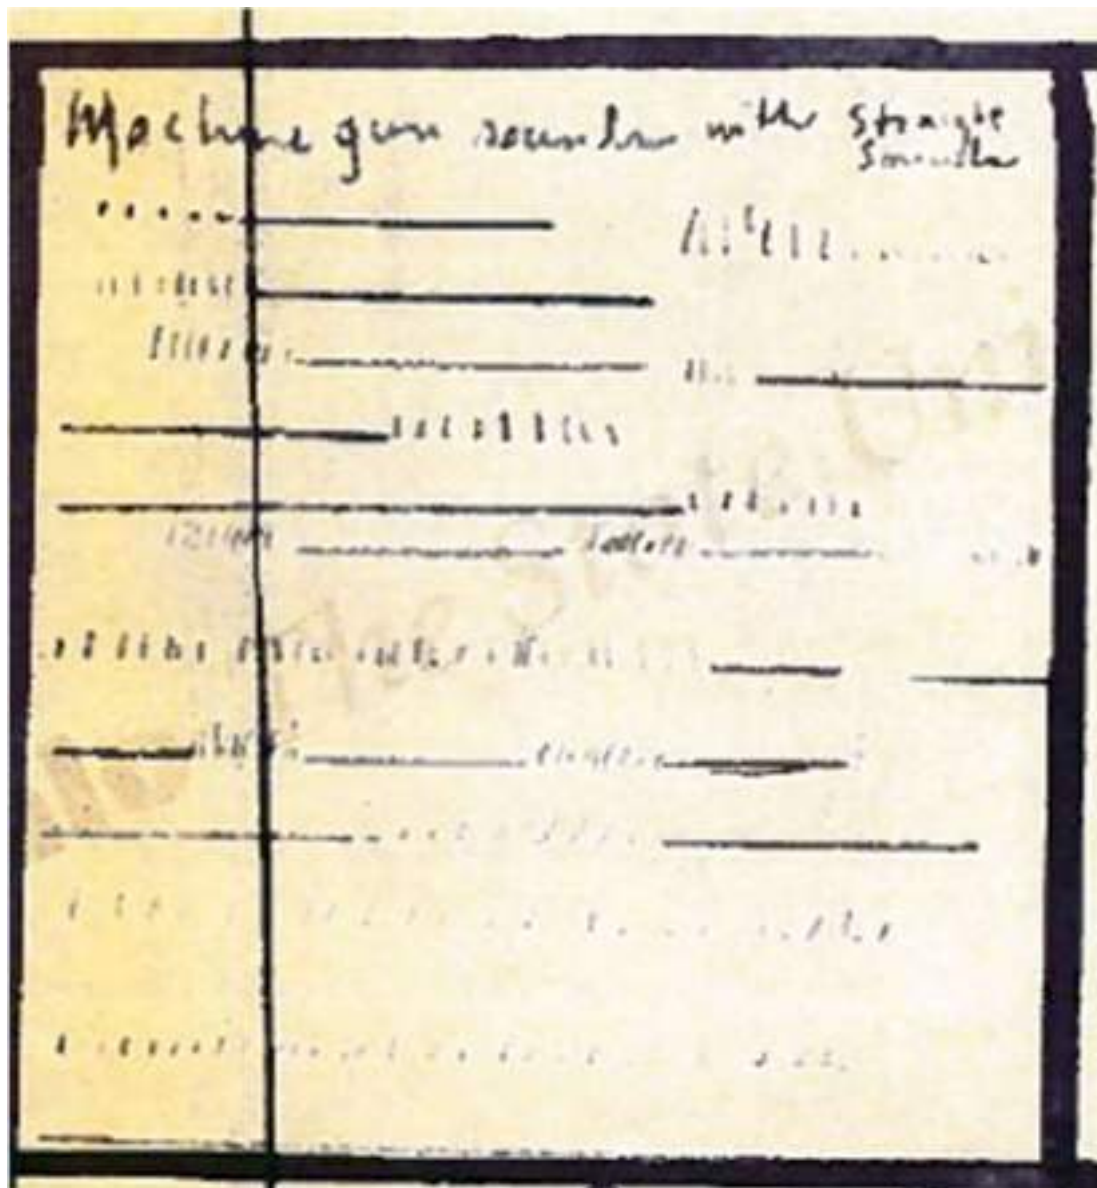 Machine gun sounds with Straight
Sounds